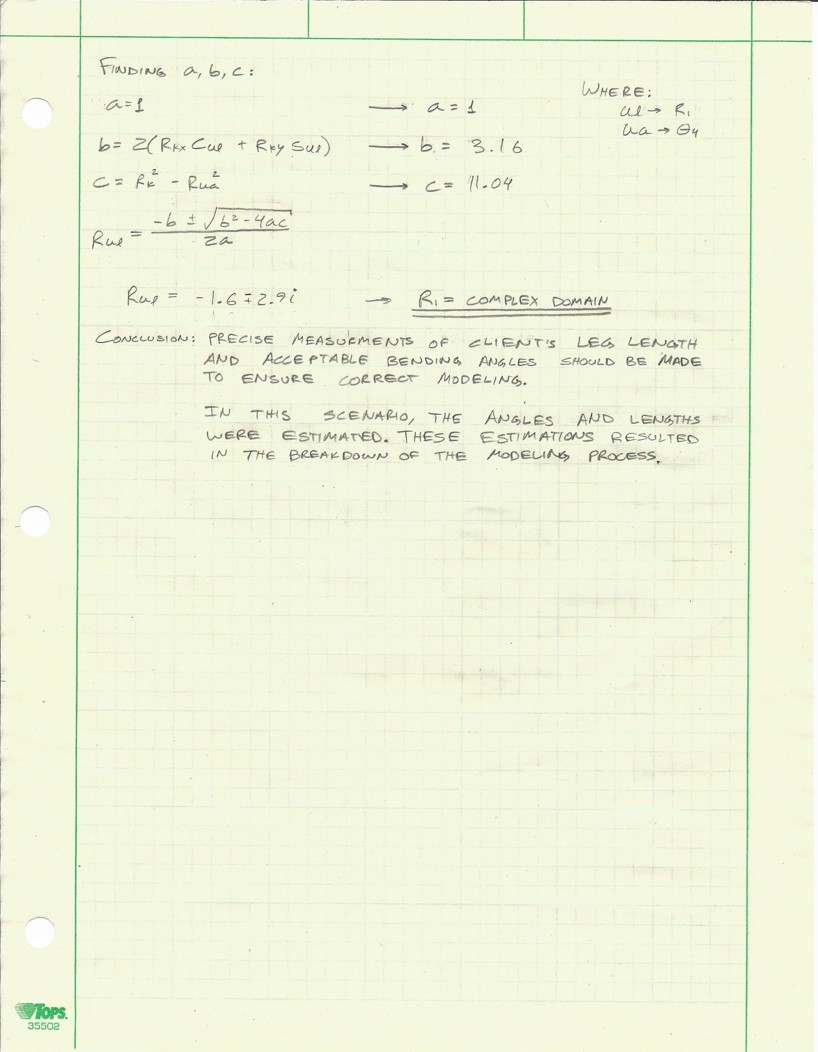 FINDING a, b, c:
WHERE:
a=1 → a = 1
ul → R₁
ua → θ₄
b = 2(Rkx Cul + Rky Sul) → b = 3.16
c = Rk² - Rua² → c = 11.04
Rul = (-b ± √(b² - 4ac)) / 2a
Rul = -1.6 ∓ 2.9i → R₁ = COMPLEX DOMAIN
CONCLUSION: PRECISE MEASURMENTS OF CLIENT'S LEG LENGTH
AND ACCEPTABLE BENDING ANGLES SHOULD BE MADE
TO ENSURE CORRECT MODELING.
IN THIS SCENARIO, THE ANGLES AND LENGTHS
WERE ESTIMATED. THESE ESTIMATIONS RESULTED
IN THE BREAKDOWN OF THE MODELING PROCESS.
TOPS.
35502